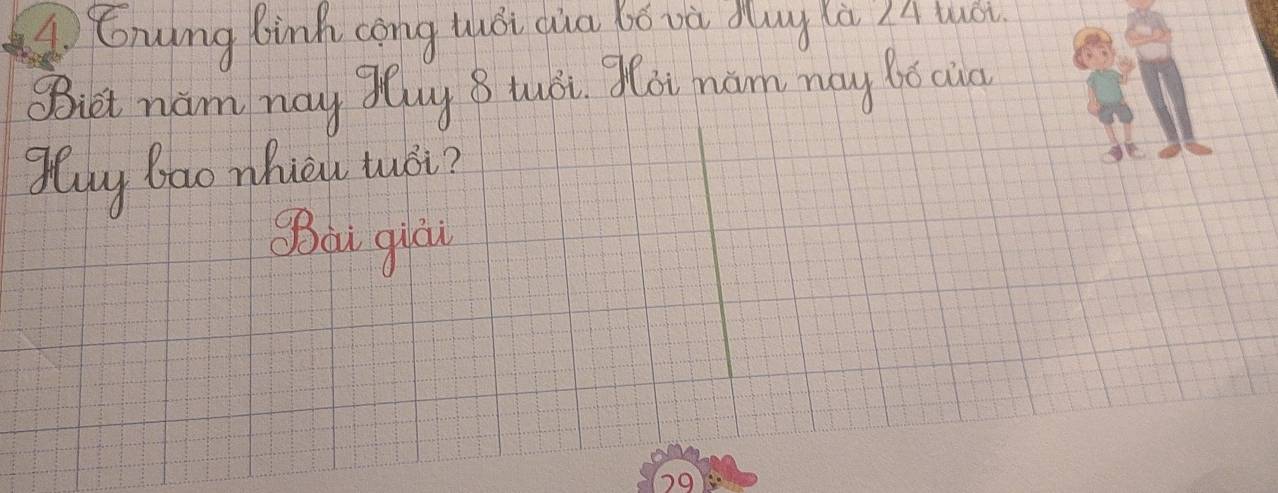 4. Trung bình cộng tuổi của bố và Huy là 24 tuổi.
Biết năm nay Huy 8 tuổi. Hỏi năm nay bố của
Huy bao nhiêu tuổi?
Bài giải
29